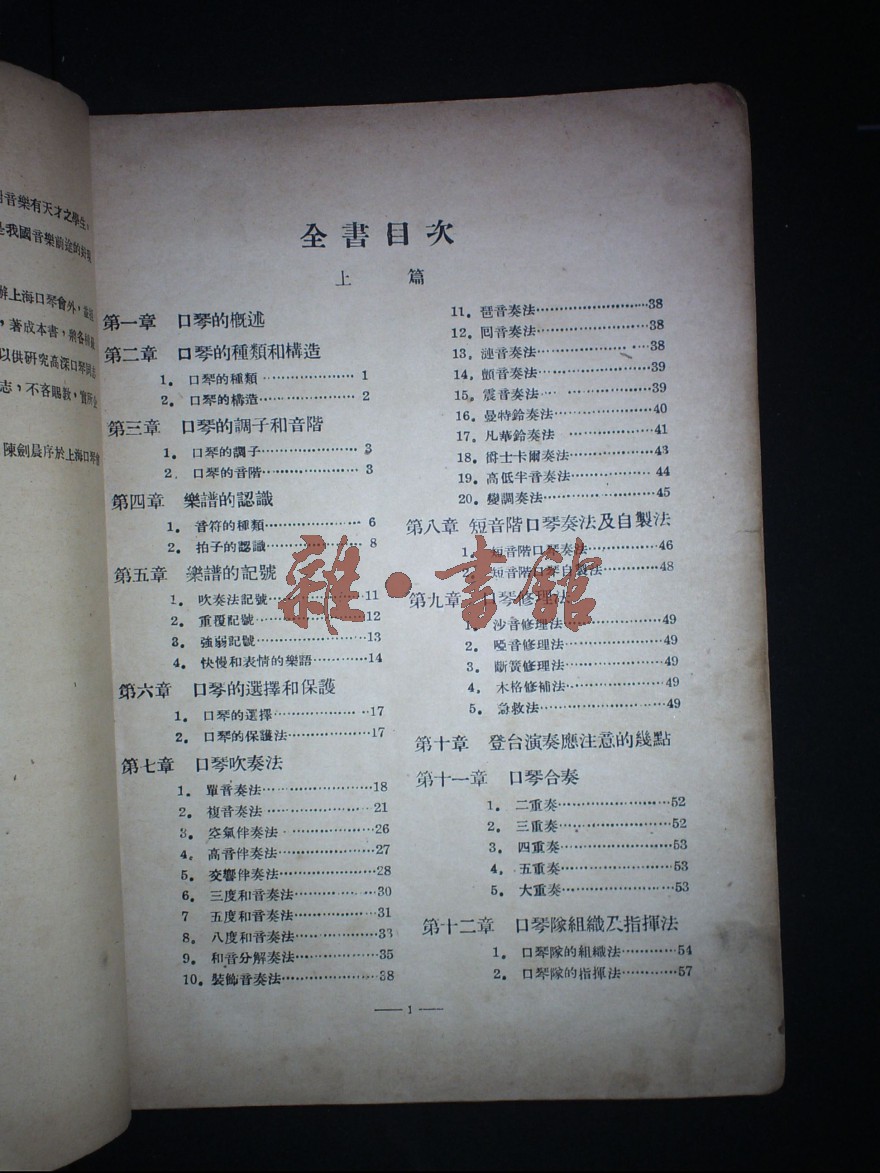 音樂有天才之學生，
是我國音樂前途的
辦上海口琴會外，
，著成本書，
以供研究高深口琴同志
志，不吝賜教，
陳劍晨序於上海口琴會
全書目次
上篇
第一章 口琴的概述
第二章 口琴的種類和構造
1. 口琴的種類……………1
2. 口琴的構造……………2
第三章 口琴的調子和音階
1. 口琴的調子……………3
2. 口琴的音階……………3
第四章 樂譜的認識
1. 音符的種類……………6
2. 拍子的認識……………8
第五章 樂譜的記號
1. 吹奏法記號……………11
2. 重覆記號……………12
3. 強弱記號……………13
4. 快慢和表情的樂語………14
第六章 口琴的選擇和保護
1. 口琴的選擇……………17
2. 口琴的保護法……………17
第七章 口琴吹奏法
1. 單音奏法……………18
2. 複音奏法……………21
3. 空氣伴奏法……………26
4. 高音伴奏法……………27
5. 交響伴奏法……………28
6. 三度和音奏法……………30
7 五度和音奏法……………31
8. 八度和音奏法……………33
9. 和音分解奏法……………35
10. 裝飾音奏法……………38
11. 琶音奏法……………38
12. 囘音奏法……………38
13. 漣音奏法……………38
14. 顫音奏法……………39
15. 震音奏法……………39
16. 曼特鈴奏法……………40
17. 凡華鈴奏法……………41
18. 爵士卡爾奏法……………43
19. 高低半音奏法……………44
20. 變調奏法……………45
第八章 短音階口琴奏法及自製法
1. 短音階口琴奏法……………46
2. 短音階口琴自製法……………48
第九章 口琴修理法
1. 沙音修理法……………49
2. 啞音修理法……………49
3. 斷簧修理法……………49
4. 木格修補法……………49
5. 急救法……………49
第十章 登台演奏應注意的幾點
第十一章 口琴合奏
1. 二重奏……………52
2. 三重奏……………52
3. 四重奏……………53
4. 五重奏……………53
5. 大重奏……………53
第十二章 口琴隊組織及指揮法
1. 口琴隊的組織法……………54
2. 口琴隊的指揮法……………57
雜·書館
— 1 —